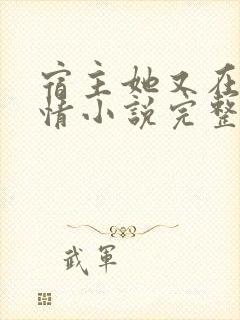 宿主她又在
情小說完整
武軍